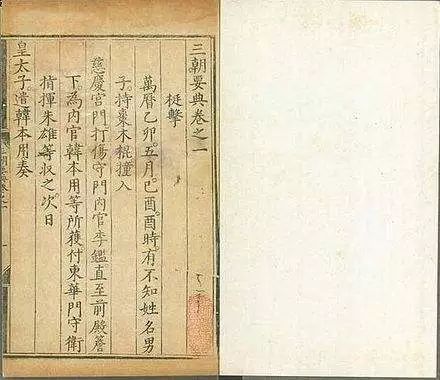 三朝要典卷之一
梃擊
萬曆乙卯。五月。己酉。酉時。有不知姓名男
子。持棗木棍撞入
慈慶宮門打傷守門內官李鑑直至前殿簷
下。為內官韓本用等所獲付東華門守衛
指揮朱雄等收之次日
皇太子。遣韓本用奏